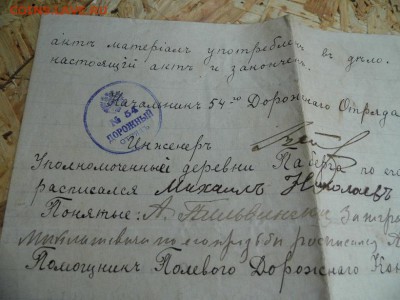 актъ матеріалъ употребленъ въ дѣло.
настоящій актъ и законченъ.
Начальникъ 54го Дорожнаго Отряда
№ 54
ДОРОЖНЫЙ
Инженеръ
Уполномоченный деревни по его
расписался Михаилъ Николаевъ
Понятые: А.
росписался
Помощникъ Полевого Дорожнаго